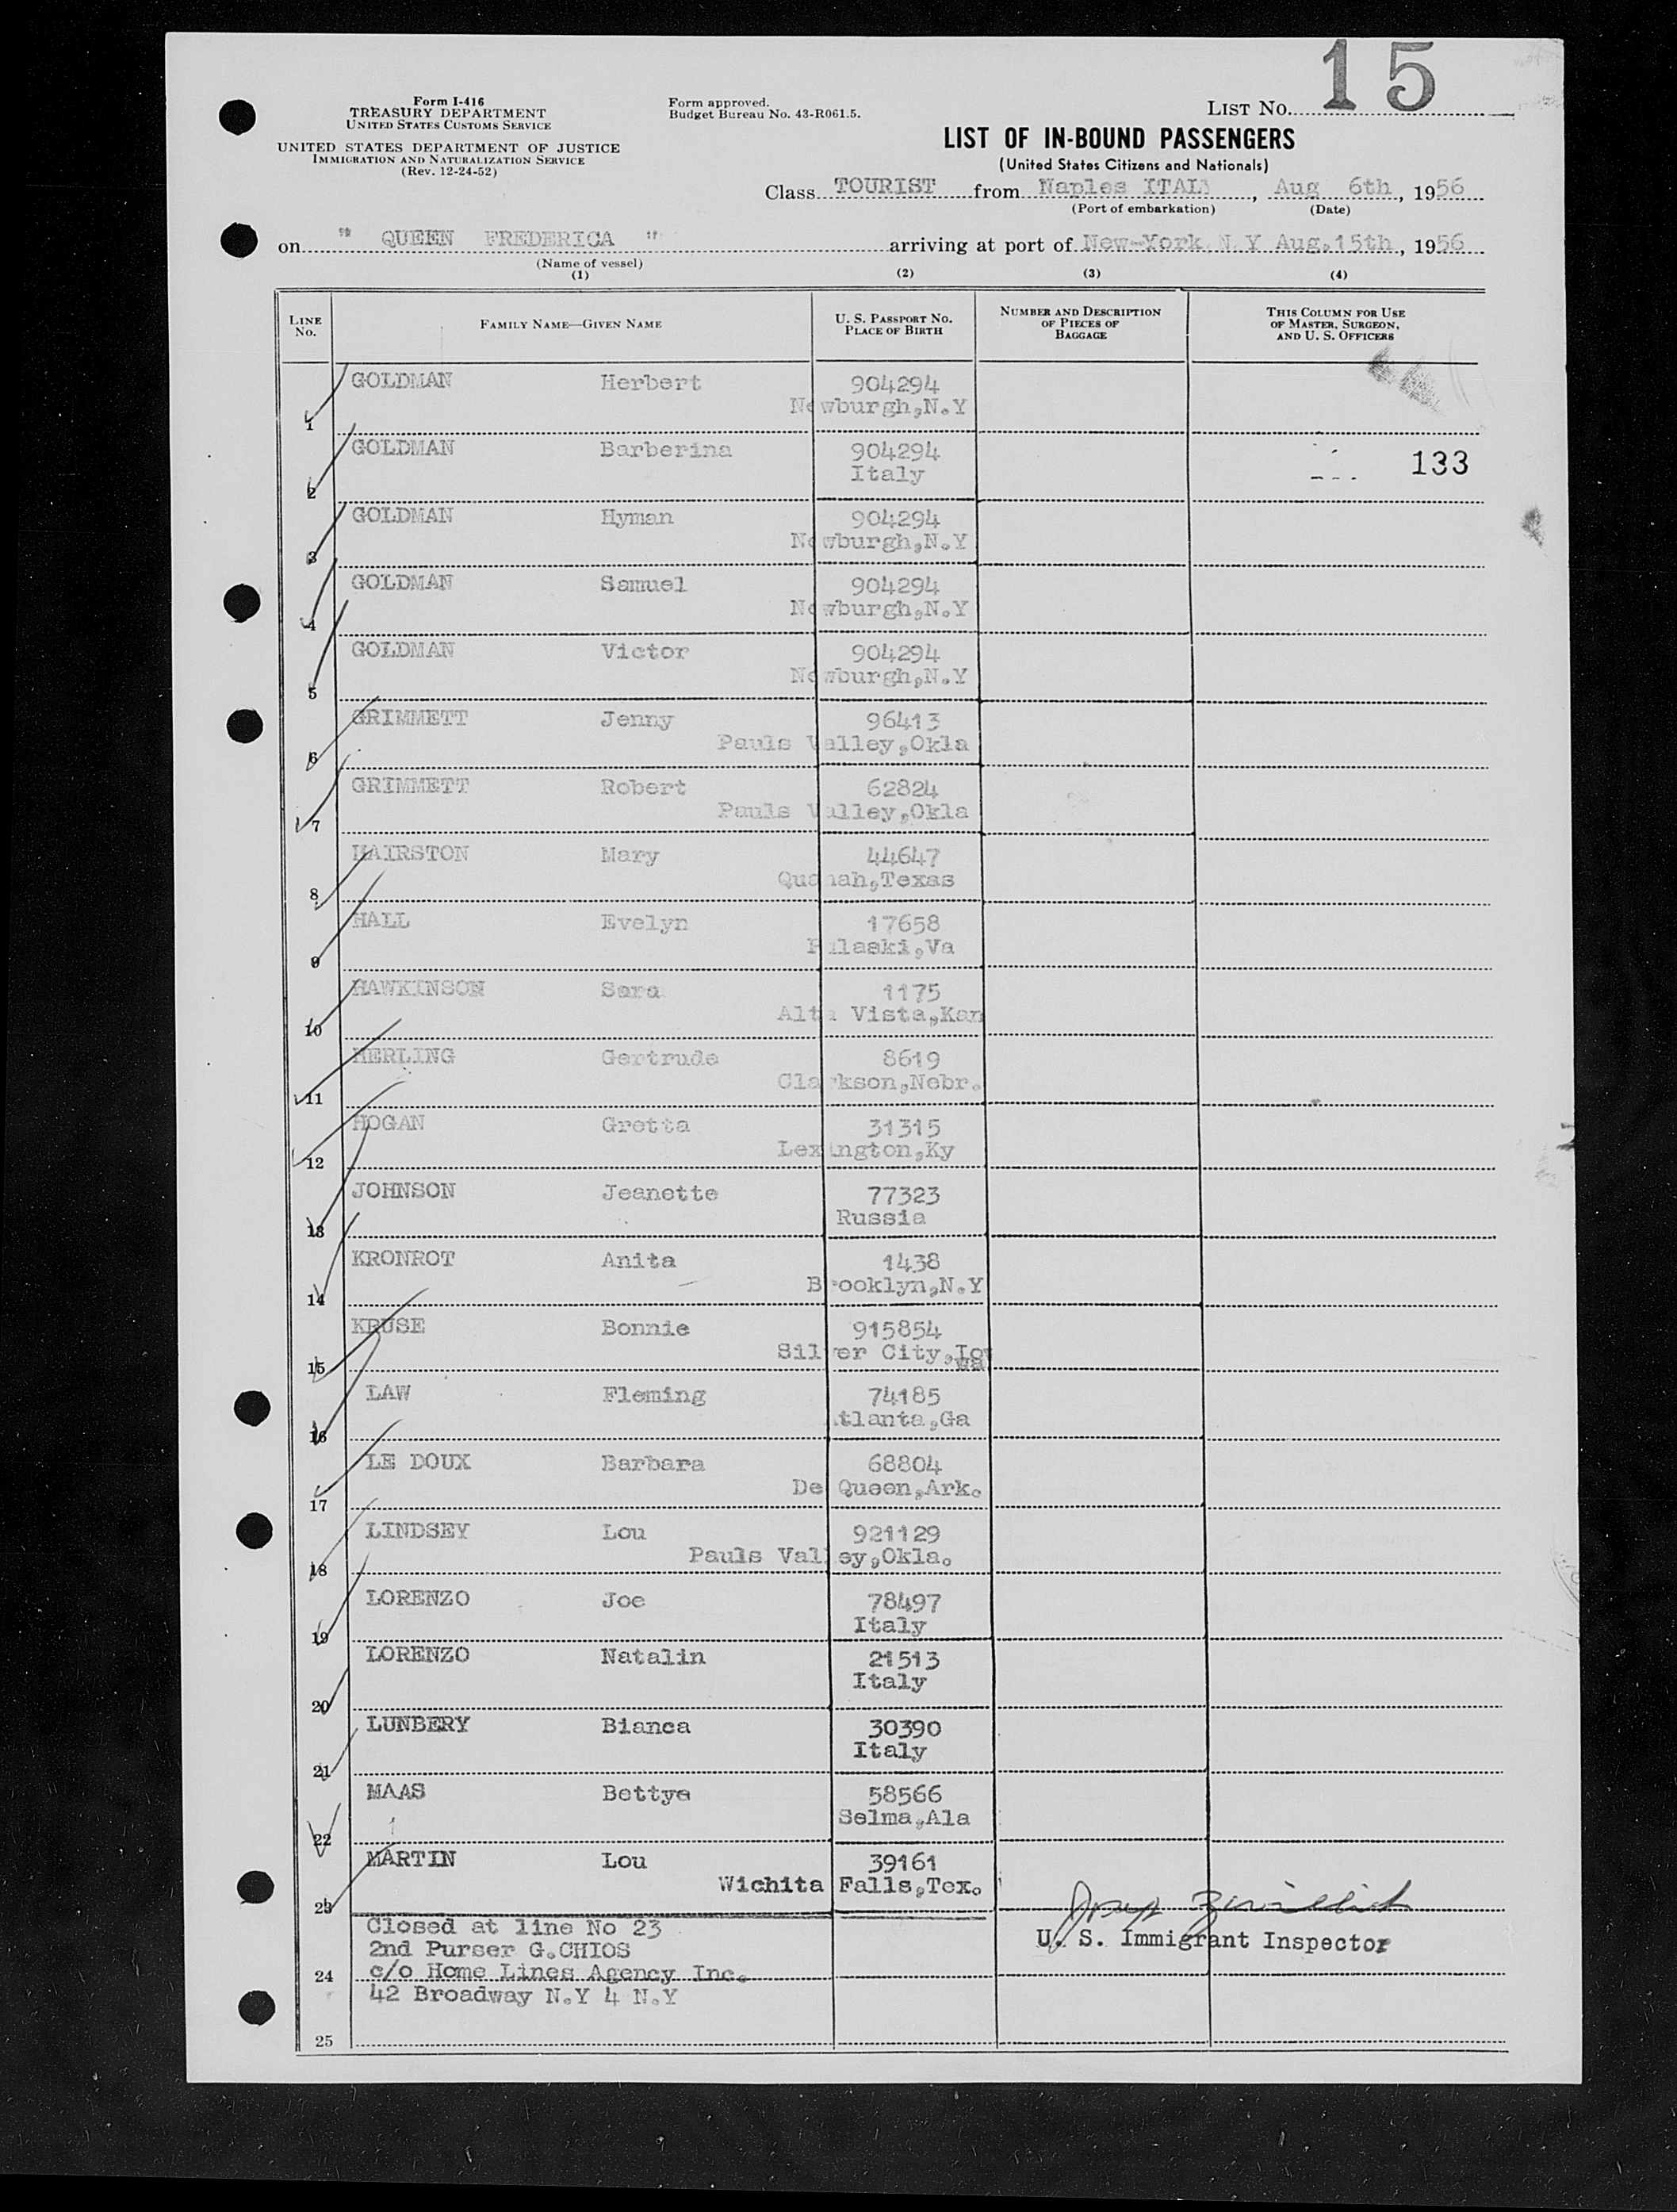 15
Form I-416
TREASURY DEPARTMENT
UNITED STATES CUSTOMS SERVICE
UNITED STATES DEPARTMENT OF JUSTICE
IMMIGRATION AND NATURALIZATION SERVICE
(Rev. 12-24-52)
Form approved.
Budget Bureau No. 43-R061.5.
LIST NO.
LIST OF IN-BOUND PASSENGERS
(United States Citizens and Nationals)
Class TOURIST from Naples ITALY, Aug 6th, 1956
(Port of embarkation) (Date)
on " QUEEN FREDERICA " arriving at port of New-York N.Y Aug.15th, 1956
(Name of vessel)
(1) (2) (3) (4)
LINE NO. FAMILY NAME—GIVEN NAME U. S. PASSPORT NO. PLACE OF BIRTH NUMBER AND DESCRIPTION OF PIECES OF BAGGAGE THIS COLUMN FOR USE OF MASTER, SURGEON, AND U. S. OFFICERS
GOLDMAN Herbert 904294
1 Newburgh,N.Y
GOLDMAN Barberina 904294 133
2 Italy
GOLDMAN Hyman 904294
3 Newburgh,N.Y
GOLDMAN Samuel 904294
4 Newburgh,N.Y
GOLDMAN Victor 904294
5 Newburgh,N.Y
GRIMMETT Jenny 96413
6 Pauls Valley,Okla
GRIMMETT Robert 62824
7 Pauls Valley,Okla
HAIRSTON Mary 44647
8 Quanah,Texas
HALL Evelyn 17658
9 Pulaski,Va
HAWKINSON Sara 1175
10 Alta Vista,Kan
HERLING Gertrude 8619
11 Clarkson,Nebr.
HOGAN Gretta 31315
12 Lexington,Ky
JOHNSON Jeanette 77323
13 Russia
KRONROT Anita 1438
14 Brooklyn,N.Y
KRUSE Bonnie 915854
15 Silver City,Iowa
LAW Fleming 74185
16 Atlanta,Ga
LE DOUX Barbara 68804
17 De Queen,Ark.
LINDSEY Lou 921129
18 Pauls Valley,Okla.
LORENZO Joe 78497
19 Italy
LORENZO Natalin 21513
20 Italy
LUNBERY Bianca 30390
21 Italy
MAAS Bettye 58566
22 Selma,Ala
MARTIN Lou 39161
23 Wichita Falls,Tex.
Closed at line No 23
U. S. Immigrant Inspector
2nd Purser G.CHIOS
24 c/o Home Lines Agency Inc.
42 Broadway N.Y 4 N.Y
25